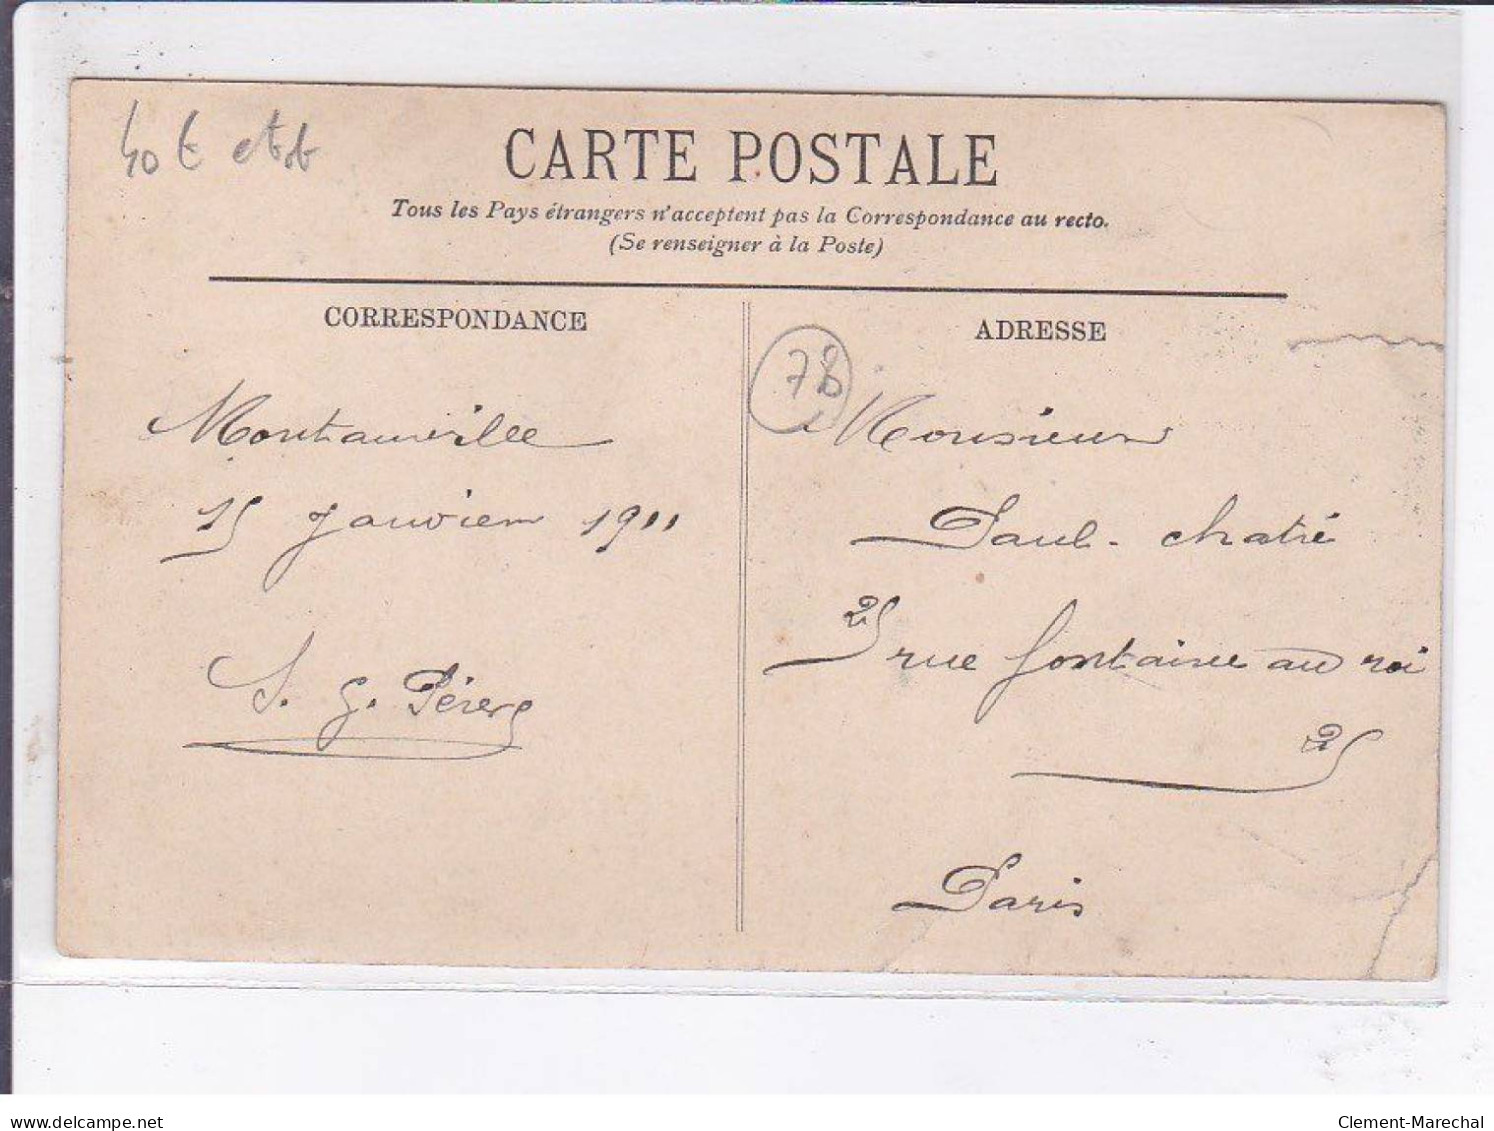 40 €
CARTE POSTALE
Tous les Pays étrangers n'acceptent pas la Correspondance au recto.
(Se renseigner à la Poste)
CORRESPONDANCE
Montainville
15 Janvier 1911
S. G.
ADRESSE
78
Monsieur
Paul Chatré
25 rue fontaine au roi
25
Paris
delcampe.net
Clement-Marechal